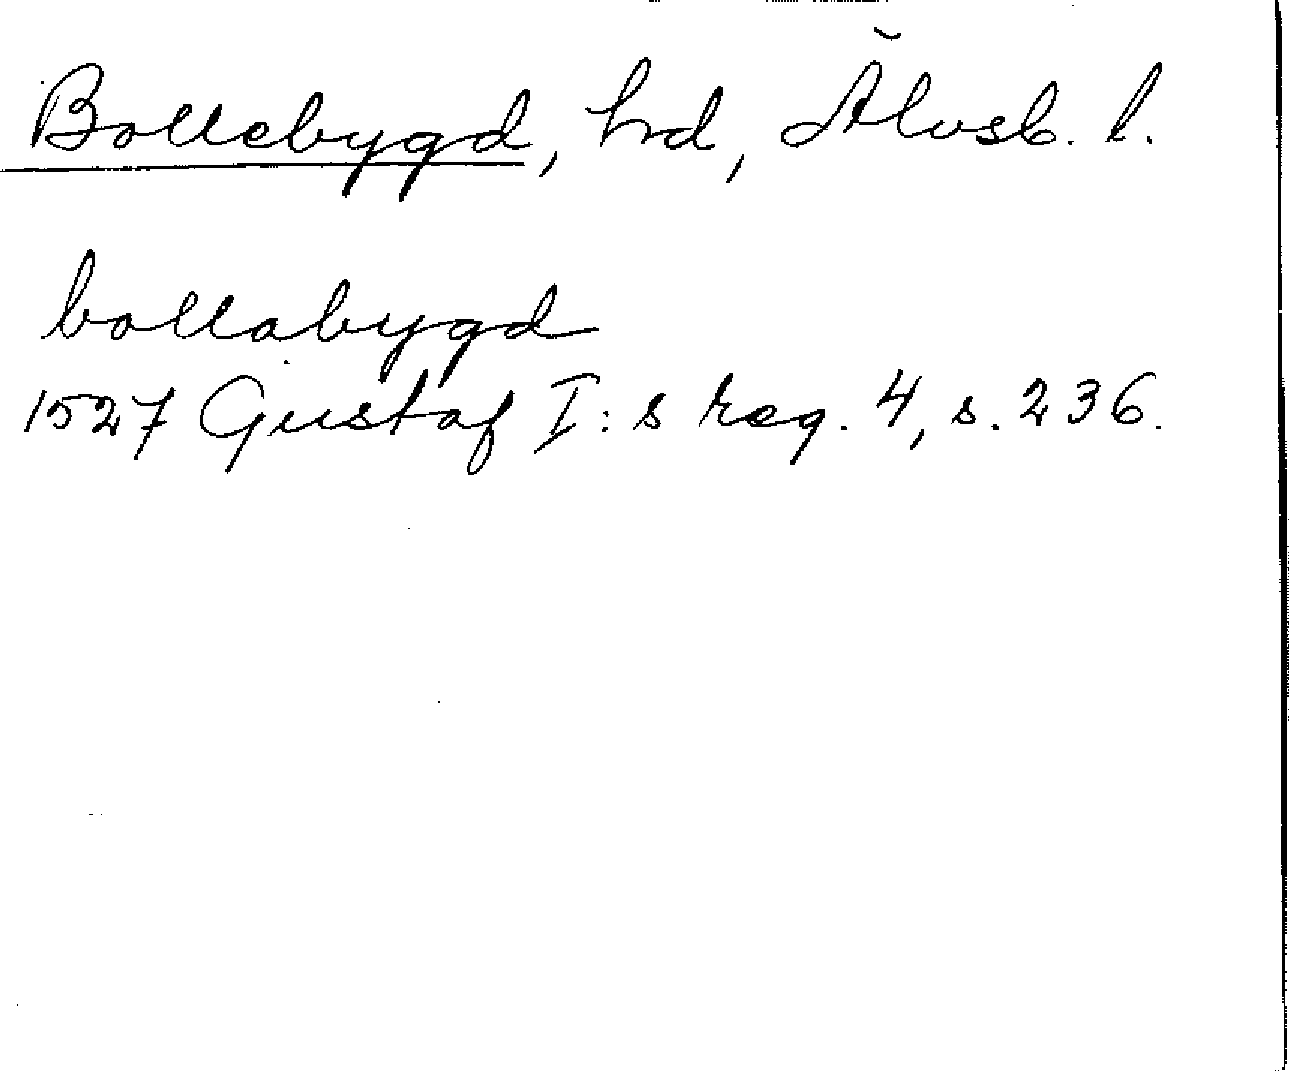 Bollebygd, hd, Älvsb. l.
bollabygd
1527 Gustaf I:s reg. 4, s. 236.